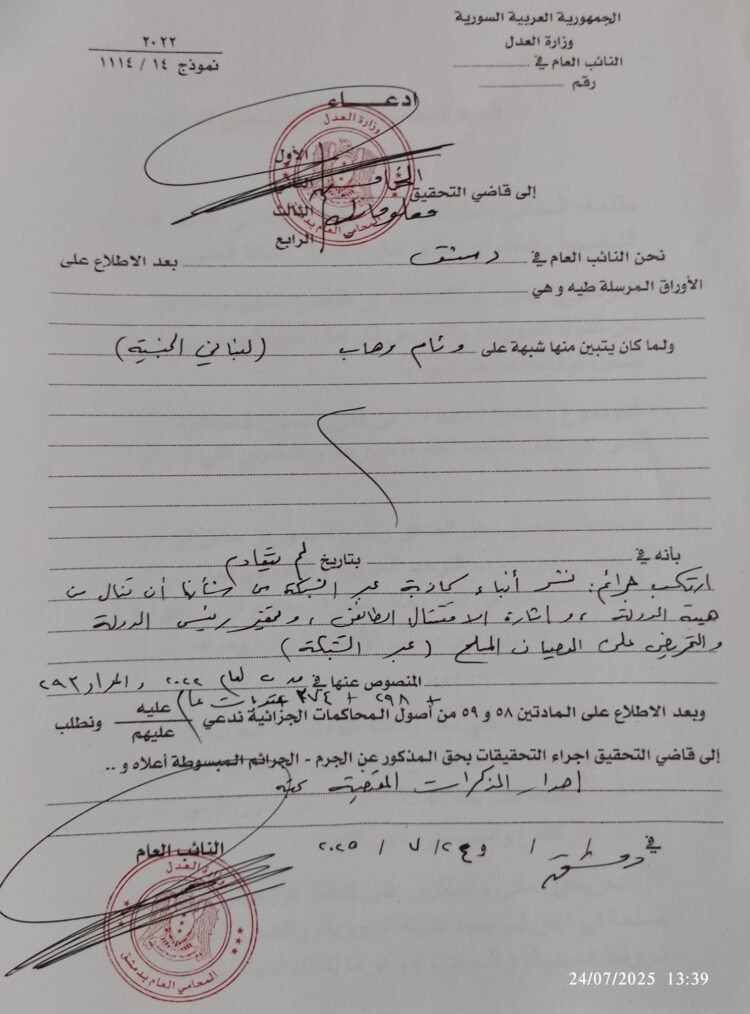 الجمهورية العربية السورية
وزارة العدل
النائب العام في
رقم
٢٠٢٢
نموذج ١٤ / ١١١٤
ادعـــاء
وزارة العدل
المحامي العام بدمشق
إلى قاضي التحقيق
الأول
الثاني
الثالث
الرابع
معلوماتية
نحن النائب العام في دمشق بعد الاطلاع على
الأوراق المرسلة طيه وهي
ولما كان يتبين منها شبهة على وئام وهاب (لبناني الجنسية)
بأنه في بتاريخ لم يتقادم
ارتكب جرائم: نشر أنباء كاذبة عبر الشبكة من شأنها أن تنال من
هيبة الدولة، وإثارة الاقتتال الطائفي، وتحقير رئيس الدولة
والتحريض على العصيان المسلح (عبر الشبكة)
المنصوص عنها في لعام ٢٠٢٢ والمواد ٢٩٣
+ ٢٩٨ + ٣٧٤ عقوبات عام
وبعد الاطلاع على المادتين ٥٨ و ٥٩ من أصول المحاكمات الجزائية ندعي عليه / عليهم ونطلب
إلى قاضي التحقيق اجراء التحقيقات بحق المذكور عن الجرم - الجرائم المبسوطة أعلاه و ..
إصدار المذكرات المقتضية بحقه
في دمشق / و ٢٤ / ٧ / ٢٠٢٥
النائب العام
وزارة العدل
المحامي العام بدمشق
24/07/2025 13:39